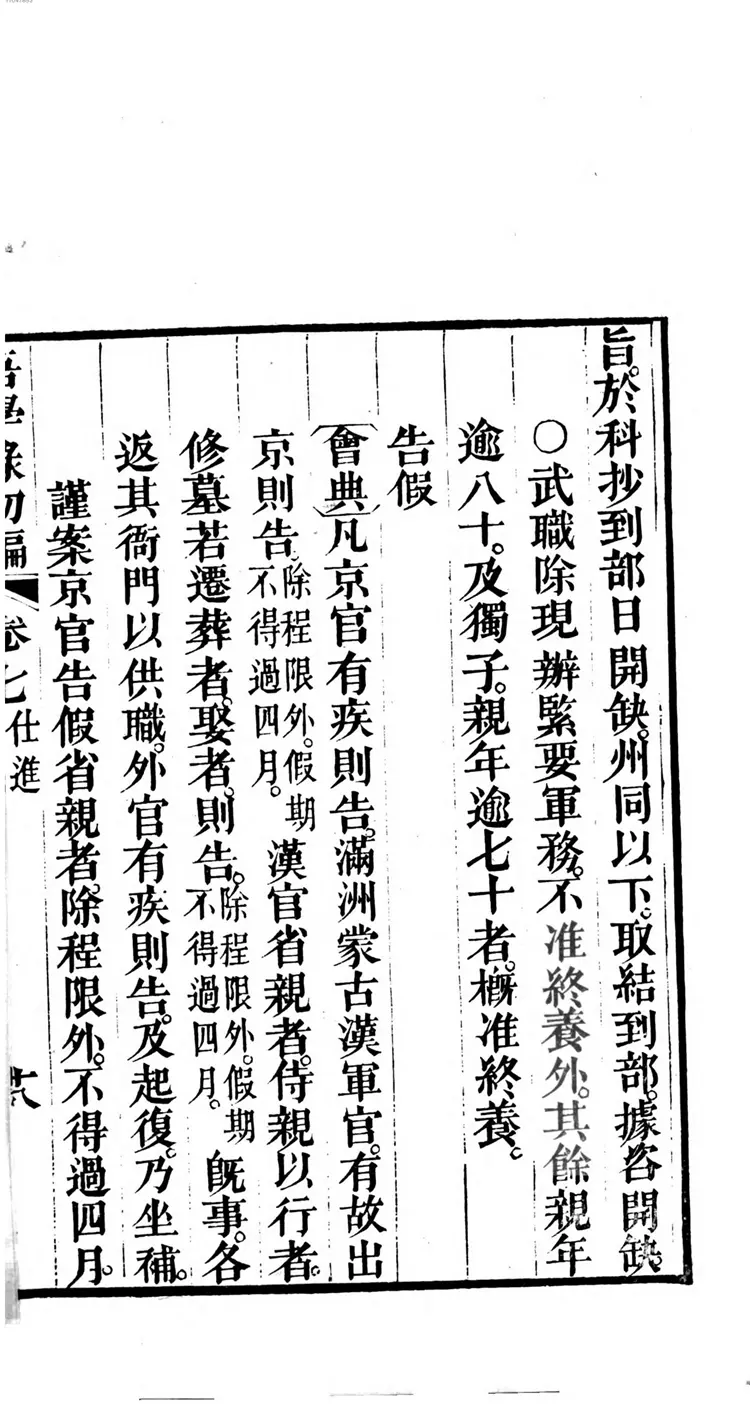 旨。於科抄到部日開缺。州同以下。取結到部。據咨開缺。
〇武職除現辦緊要軍務。不准終養外。其餘親年
逾八十。及獨子。親年逾七十者。槪准終養。
告假
〔會典〕凡京官有疾則告。滿洲蒙古漢軍官。有故出
京則告。除程限外。假期不得過四月。漢官省親者。侍親以行者。
修墓若遷葬者。娶者。則告。除程限外。假期不得過四月。旣事。各
返其衙門以供職。外官有疾則告。及起復。乃坐補。
謹案京官告假省親者。除程限外。不得過四月。
吾學錄初編 卷七 仕進 十八